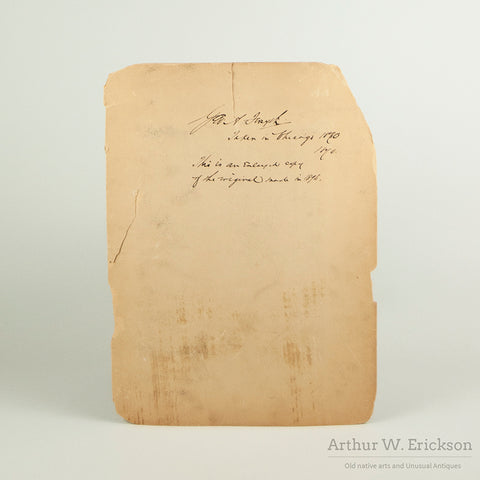 Taken in Chicago 1870
1870
This is an Enlarged copy
of the original made in 1896.
Arthur W. Erickson
Old native arts and Unusual Antiques